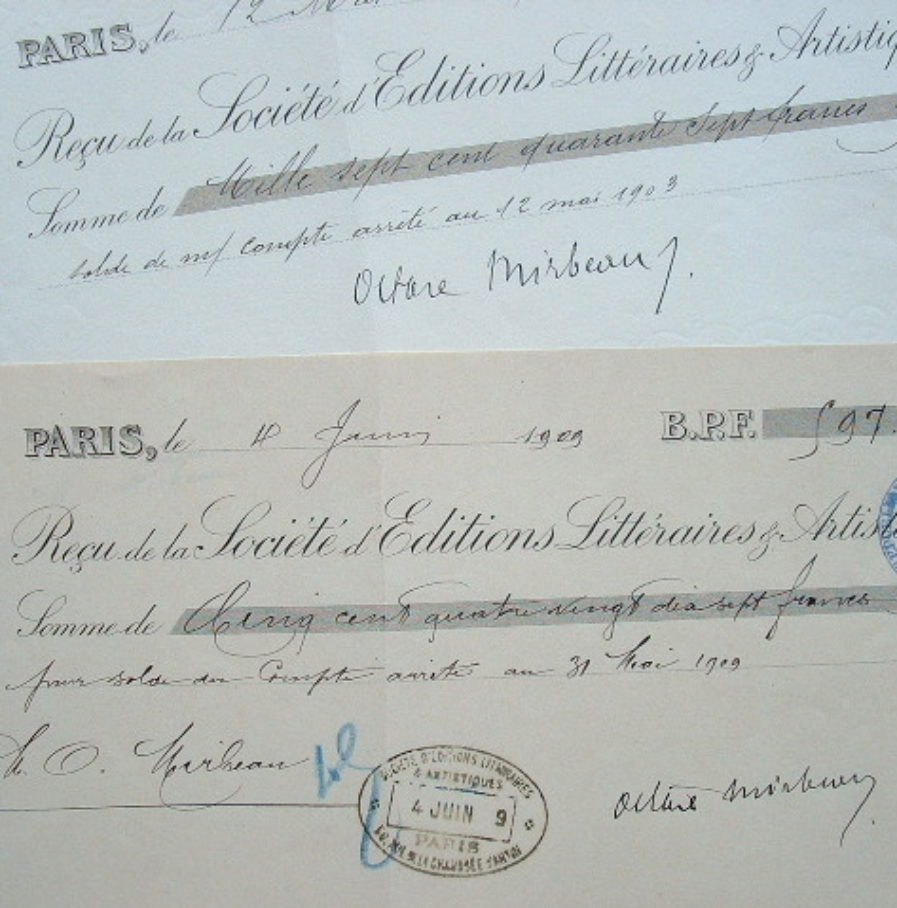 PARIS, le 12
Reçu de la Société d'Editions Littéraires & Artistiq
Somme de Mille sept cent quarante sept francs
solde de m/ compte arrêté au 12 mai 1903
Octave Mirbeau
PARIS, le 4 Juin 1909 B.P.F. 597.
Reçu de la Société d'Editions Littéraires & Artist
Somme de Cinq cent quatre vingt dix sept francs
pour solde du Compte arrêté au 31 Mai 1909
O. Mirbeau
SOCIÉTÉ D'EDITIONS LITTÉRAIRES
& ARTISTIQUES
4 JUIN 9
PARIS
DE LA CHAUSSÉE D'ANTIN
Octave Mirbeau